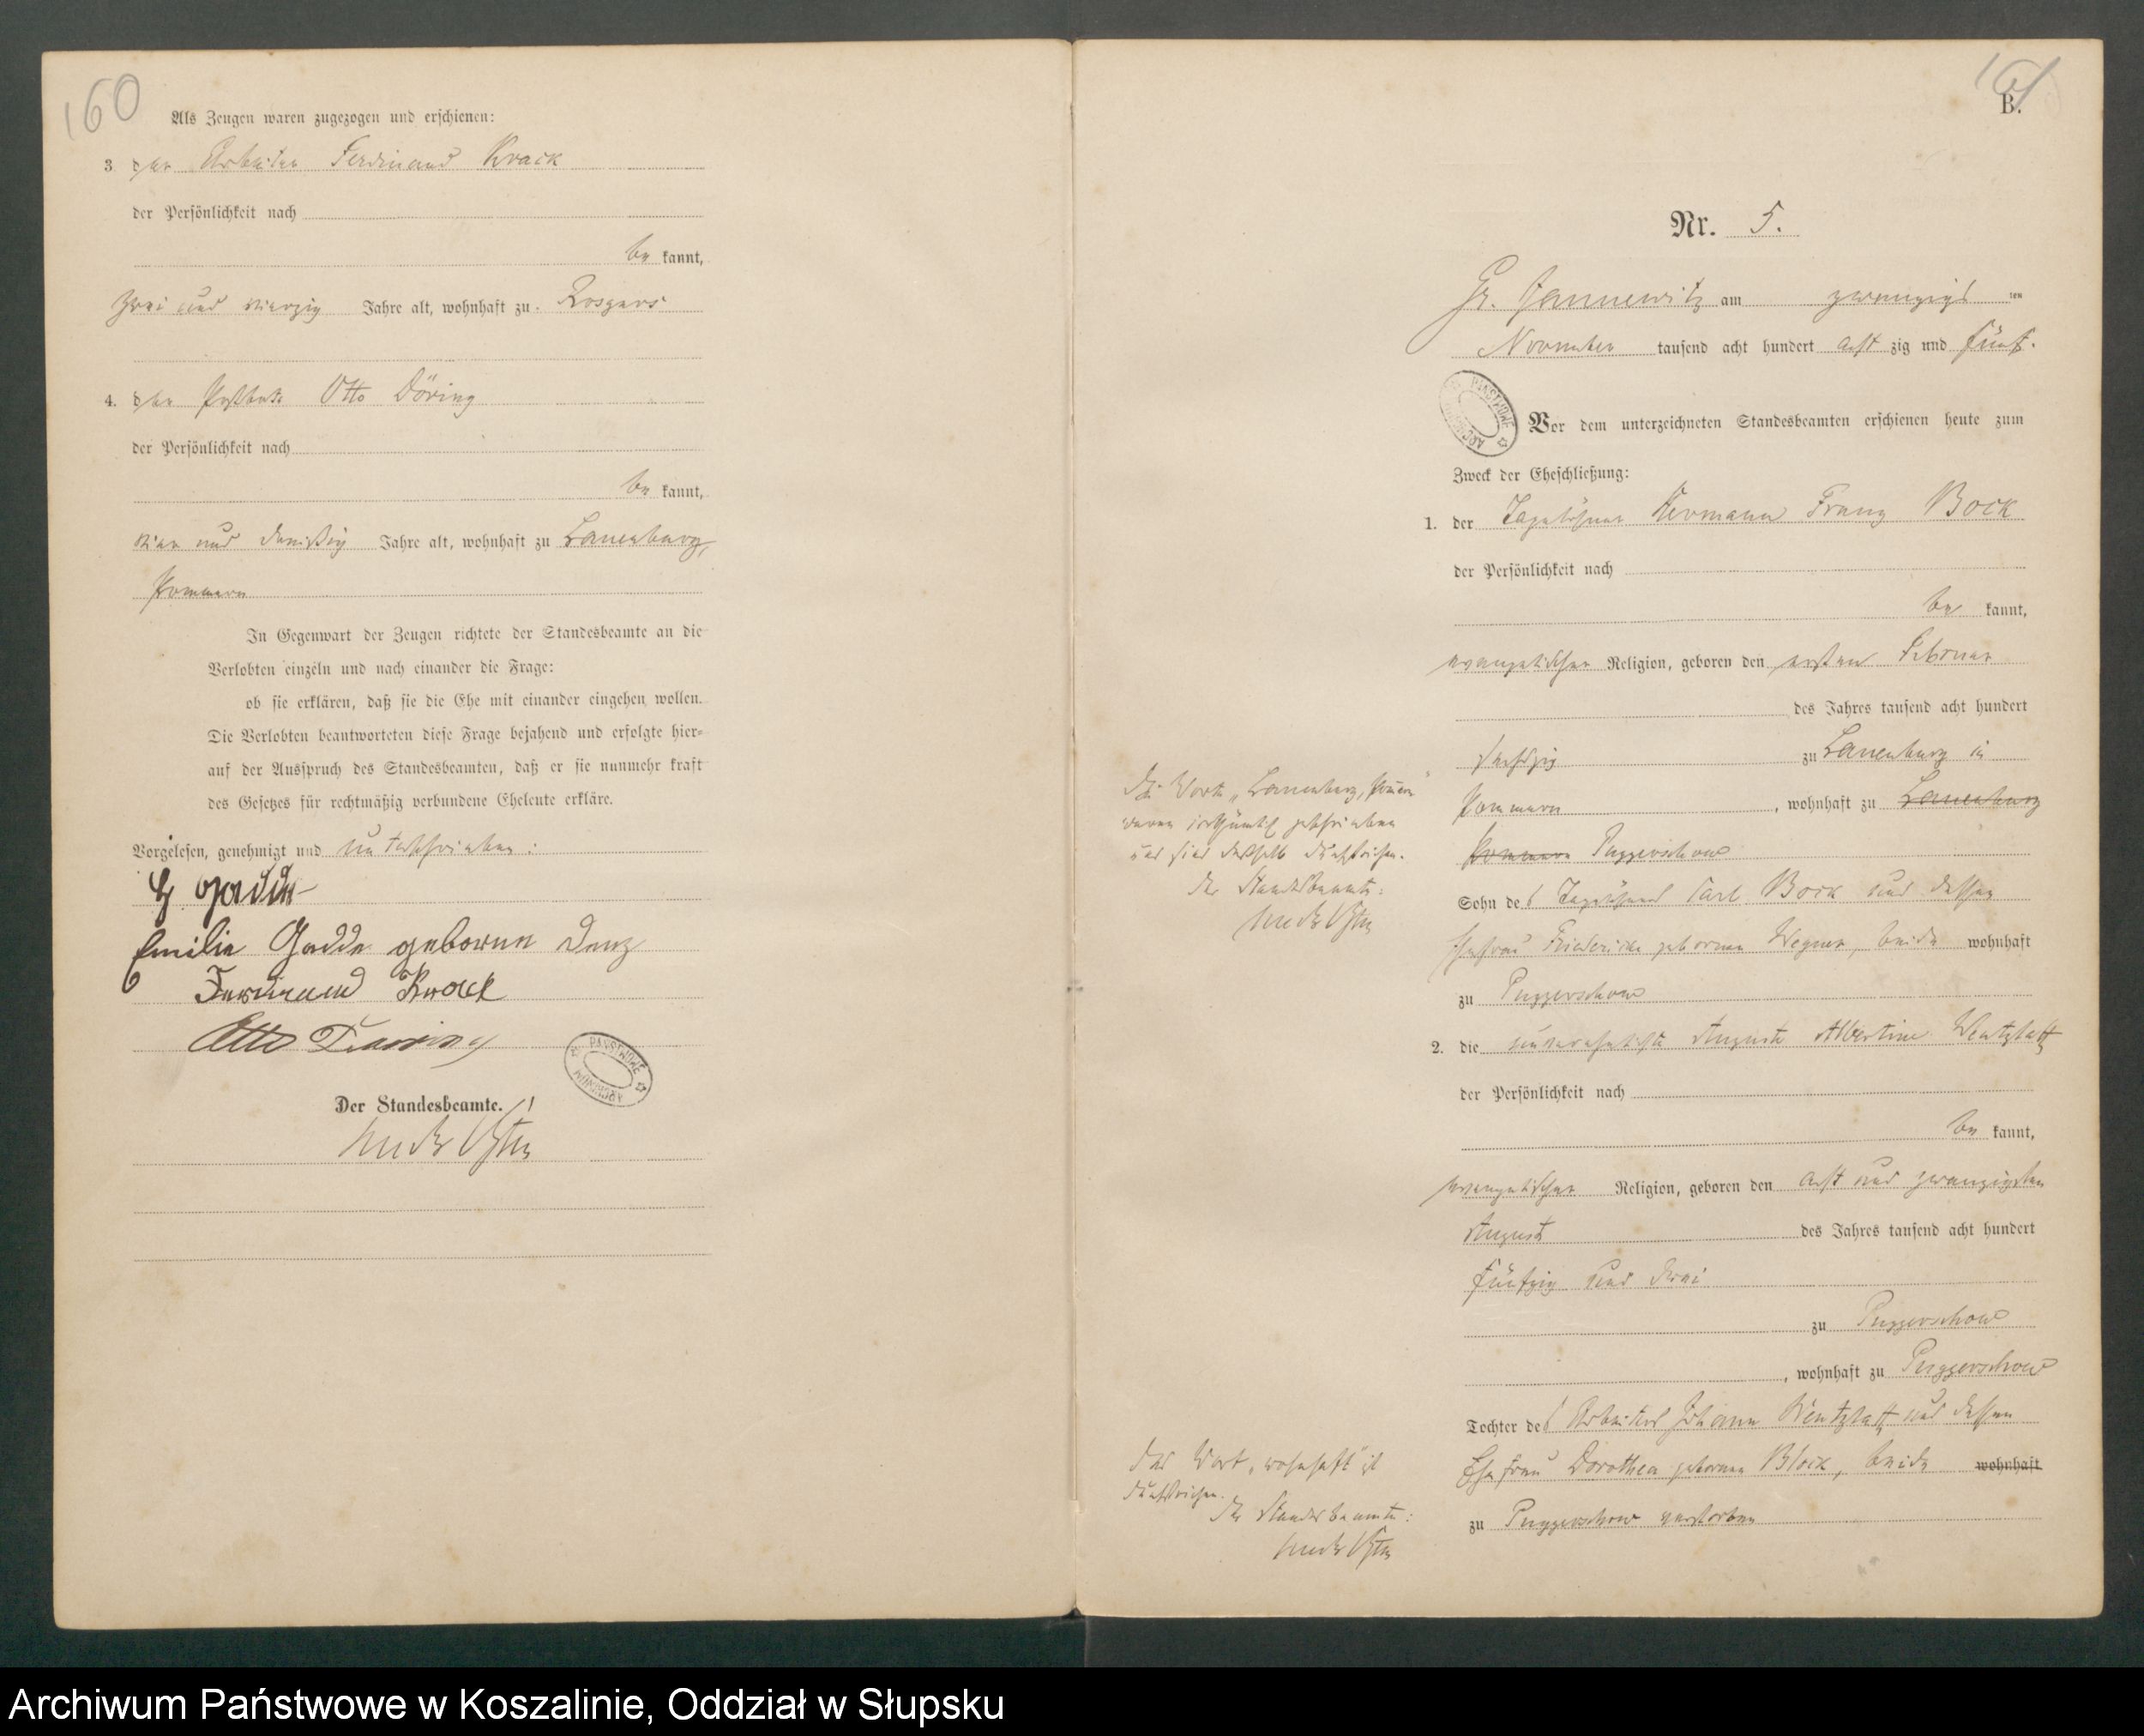 160
Als Zeugen waren zugezogen und erschienen:
3. der Arbeiter Ferdinand Kroack
der Persönlichkeit nach
be kannt,
zwei und vierzig Jahre alt, wohnhaft zu Rosgars
4. der Postbote Otto Döring
der Persönlichkeit nach
be kannt,
vier und dreißig Jahre alt, wohnhaft zu Lauenburg,
Pommern
In Gegenwart der Zeugen richtete der Standesbeamte an die
Verlobten einzeln und nach einander die Frage:
ob sie erklären, daß sie die Ehe mit einander eingehen wollen.
Die Verlobten beantworteten diese Frage bejahend und erfolgte hier-
auf der Ausspruch des Standesbeamten, daß er sie nunmehr kraft
des Gesetzes für rechtmäßig verbundene Eheleute erkläre.
Vorgelesen, genehmigt und unterschrieben:
Gadde
Emilie Gadde geborene Denz
Ferdinand Kroack
Otto Doering
Der Standesbeamte.
161
B.
Nr. 5.
Gr. Jannewitz am zwanzigs ten
November tausend acht hundert acht zig und fünf.
Vor dem unterzeichneten Standesbeamten erschienen heute zum
Zweck der Eheschließung:
1. der Tagelöhner Hermann Franz Bock
der Persönlichkeit nach
be kannt,
evangelischer Religion, geboren den ersten Februar
des Jahres tausend acht hundert
sechszig zu Lauenburg in
Pommern, wohnhaft zu Lauenburg
Pommern Puggerschow
Sohn des Tagelöhners Carl Bock und dessen
Ehefrau Friedericke geborenen Wegner, beide wohnhaft
zu Puggerschow
2. die unverehelichte Auguste Albertine Wentzlaff
der Persönlichkeit nach
be kannt,
evangelischer Religion, geboren den acht und zwanzigsten
August des Jahres tausend acht hundert
fünfzig und drei
zu Puggerschow
, wohnhaft zu Puggerschow
Tochter des Arbeiters Johann Wentzlaff und dessen
Ehefrau Dorothea geborene Block, beide wohnhaft
zu Puggerschow verstorben
Die Worte „Lauenburg, Pommern"
waren irrthümlich geschrieben
und sind deshalb durchstrichen.
Der Standesbeamte:
Das Wort „wohnhaft" ist
durchstrichen.
Der Standesbeamte:
PAŃSTWOWE ARCHIWUM
PAŃSTWOWE ARCHIWUM
Archiwum Państwowe w Koszalinie, Oddział w Słupsku